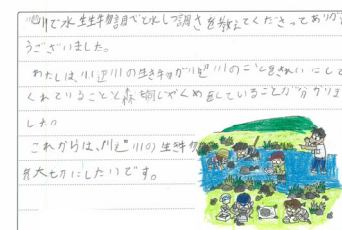 川で水生生物調べと水しつ調さを教えてくださってありがと
うございました。
わたしは川辺川の生き物が川辺川のことをきれいにして
くれていることと森と同じやくめをしていることが分かりま
した。
これからは、川辺川の生き物
を大切にしたいです。